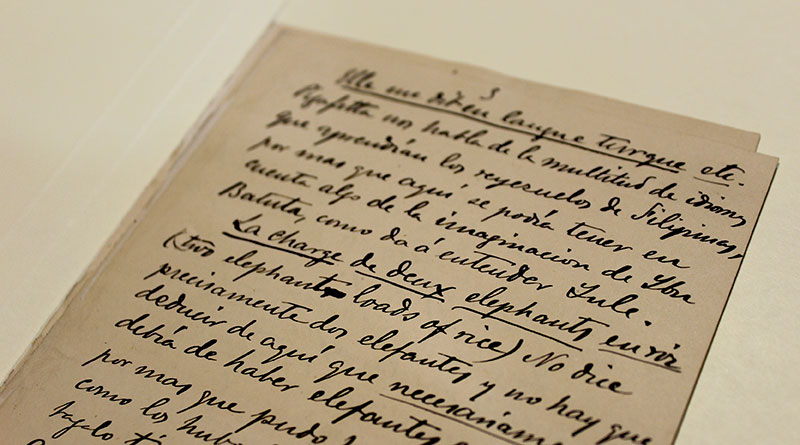 3
Elle me dit en langue turque etc.
Pigafetta nos habla de la multitud de idiomas
que aprendian los reyezuelos de Filipinas,
por mas que aquí se podía tener en
cuenta algo de la imaginacion de Ybn
Batuta, como da á entender Yule.
La charge de deux elephants en riz
(two elephant loads of rice) No dice
precisamente dos elefantes y no hay que
deducir de aquí que necesariam
debía de haber elefantes
por mas que pudo
como los hubo